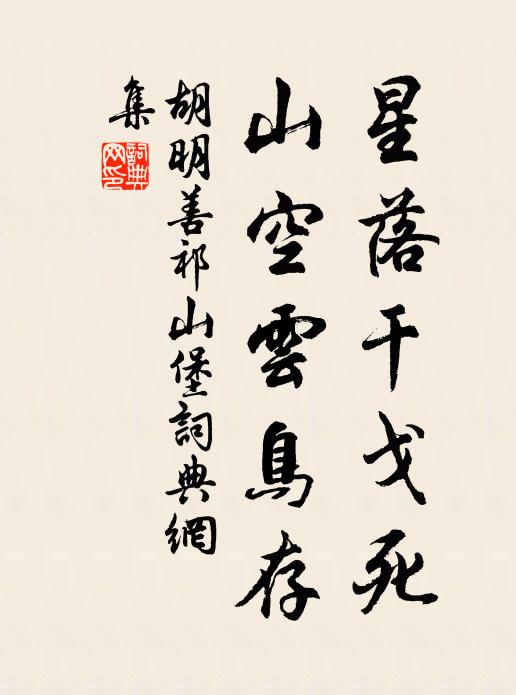 星落干戈死
山空雲鳥存
胡明善祁山堡詞典網
集
詞典網印